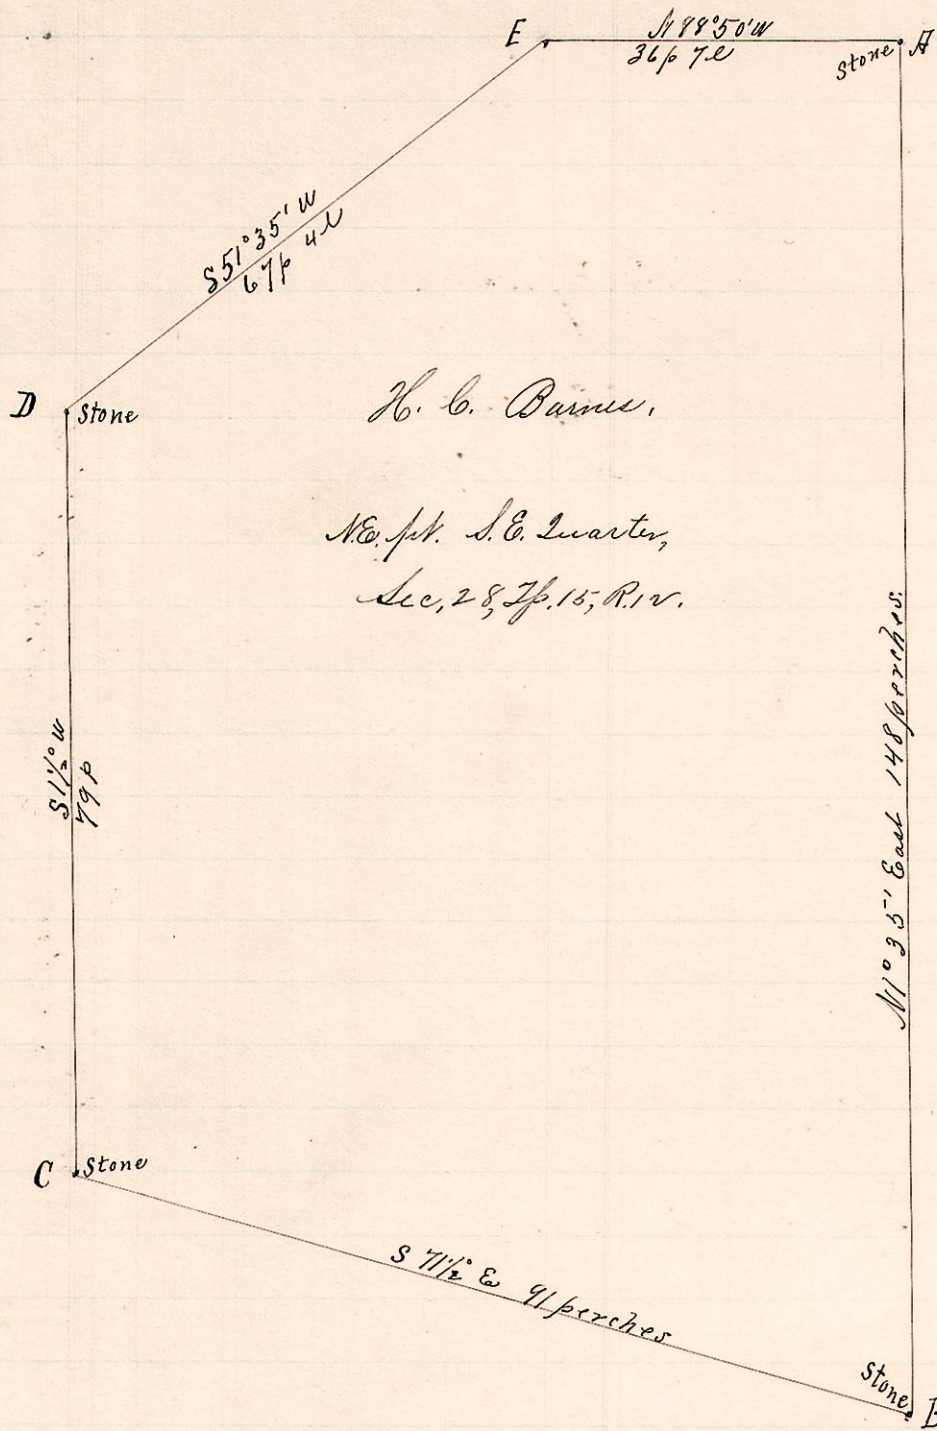 E
N 88°50'W
36p 7l
Stone A
S51°35'W
67p 4l
D Stone
H. C. Barnes.
N.E. pt. S.E. Quarter,
Sec, 28, Tp. 15, R. 12.
S 1½° W
79p
N1°35' East 148 perches.
C Stone
S 71½° E 91 perches
Stone